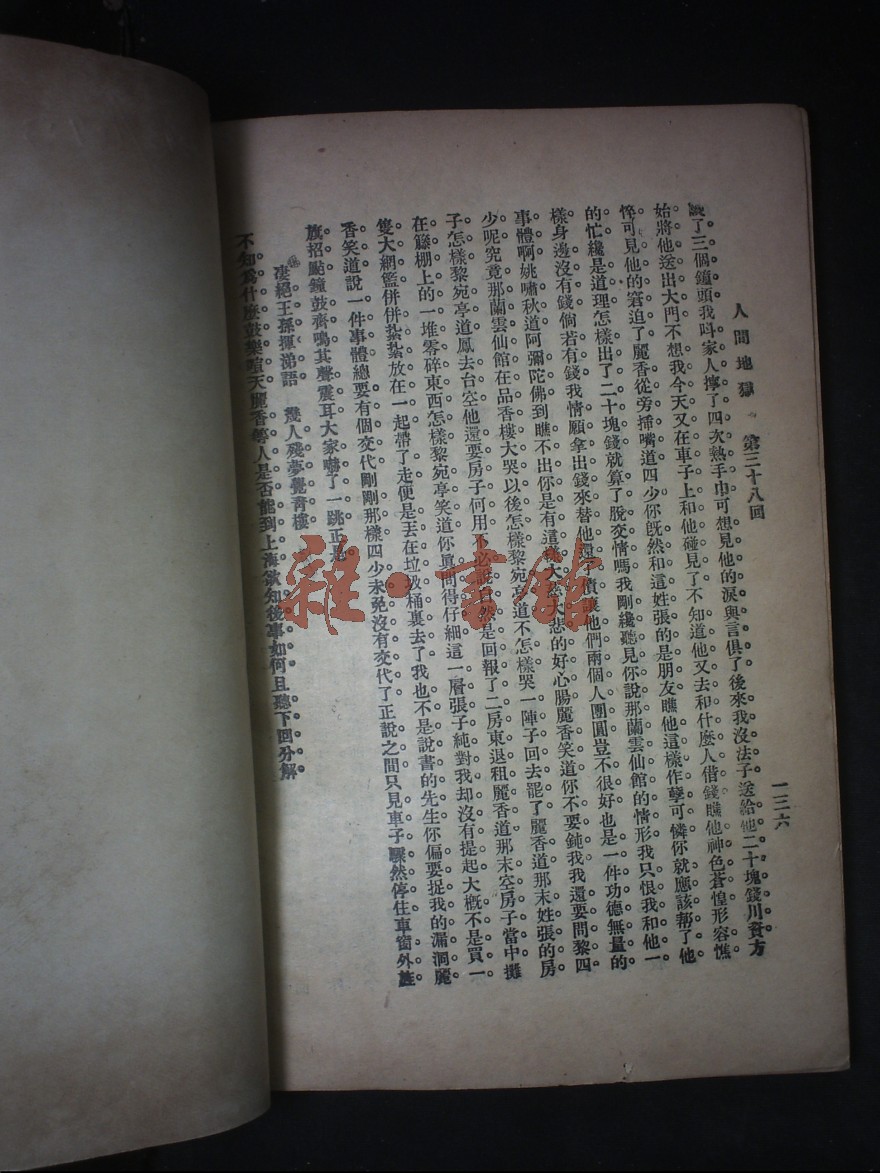 人間地獄　第三十八回　一三六
談了三個鐘頭我叫家人擰了四次熱手巾可想見他的淚與言俱了後來我沒法子送給他二十塊錢川資方
始將他送出大門不想我今天又在車子上和他碰見了不知道他又去和什麼人借錢瞧他神色蒼惶形容憔
悴可見他的窘迫了麗香從旁揷嘴道四少你旣然和這姓張的是朋友瞧他這樣作孽可憐你就應該幫了他
的忙纔是道理怎樣出了二十塊錢就算了脫交情嗎我剛纔聽見你說那蘭雲仙館的情形我只恨我和他一
樣身邊沒有錢倘若有錢我情願拿出錢來替他還了債讓他們兩個人團圓豈不很好也是一件功德無量的
事體啊姚嘯秋道阿彌陀佛到瞧不出你是有這樣大慈大悲的好心腸麗香笑道你不要鈍我我還要問黎四
少呢究竟那蘭雲仙館在品香樓大哭以後怎樣黎宛亭道不怎樣哭一陣子回去罷了麗香道那末姓張的房
子怎樣黎宛亭道鳳去台空他還要房子何用不必說自然是回報了二房東退租麗香道那末空房子當中攤
在籐棚上的一堆零碎東西怎樣黎宛亭笑道你眞問得仔細這一層張子純對我却沒有提起大概不是買一
隻大網籃併併紮紮放在一起帶了走便是丟在垃圾桶裏去了我也不是說書的先生你偏要捉我的漏洞麗
香笑道說一件事體總要有個交代剛剛那樣四少未免沒有交代了正說之間只見車子驟然停住車窗外旌
旗招颭鐘鼓齊鳴其聲震耳大家嚇了一跳正是
凄絕王孫揮涕語　幾人殘夢覺靑樓
不知爲什麼鼓樂喧天麗香等人是否能到上海欲知後事如何且聽下回分解
雜·書館